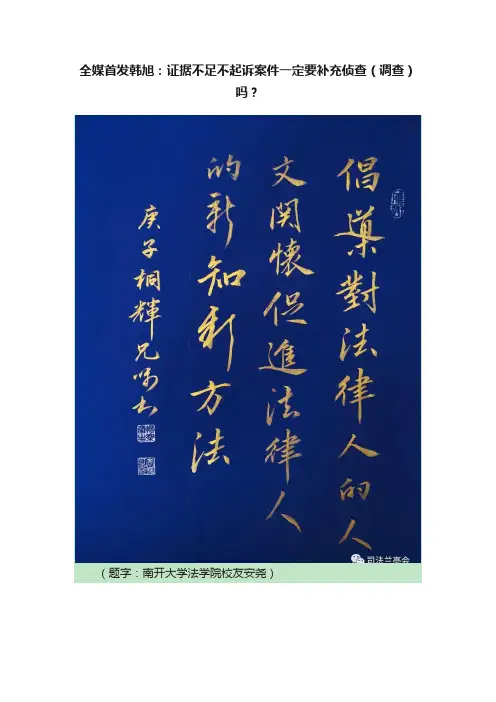 全媒首发韩旭：证据不足不起诉案件一定要补充侦查（调查）
吗？
倡導對法律人的人
文関懷促進法律人
的新知新方法
庚子桐輝兄嘱书
司法兰亭会
（题字：南开大学法学院校友安尧）